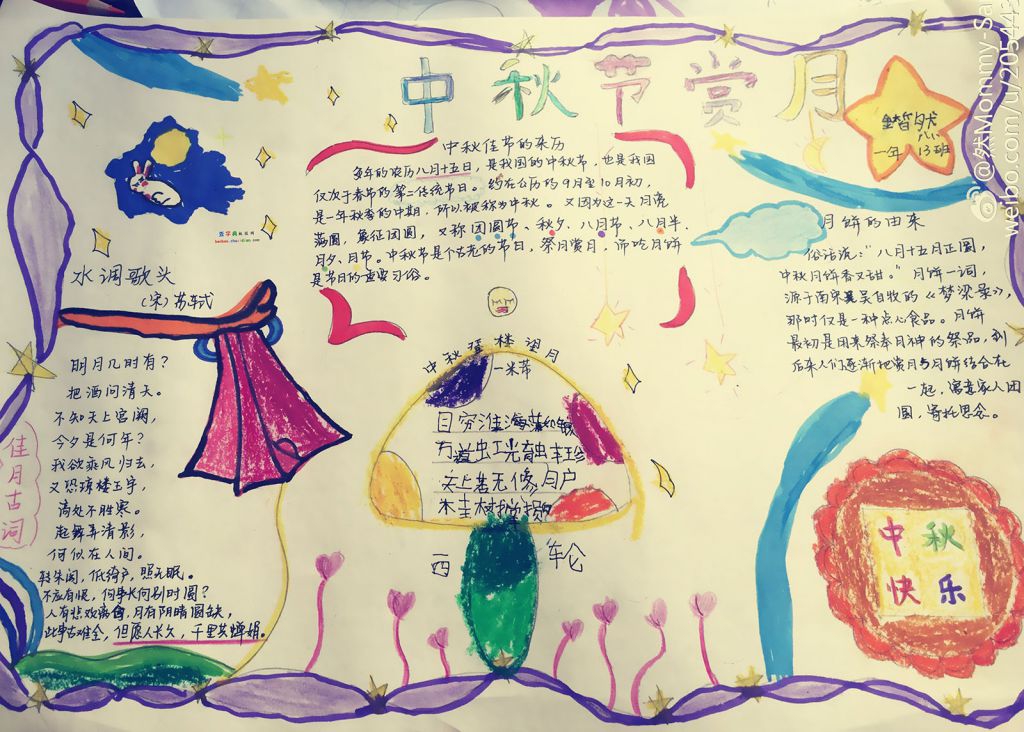 中秋节赏月
锴然
一年八(13)班
中秋佳节的来历
每年的农历八月十五日，是我国的中秋节，也是我国
仅次于春节的第二传统节日。约在公历的9月至10月初，
是一年秋季的中期，所以被称为中秋。又因为这一天月亮
满圆，象征团圆，又称团圆节、秋夕、八月节、八月半、
月夕、月节。中秋节是个古老的节日，祭月赏月、和吃月饼
是节日的重要习俗。
月饼的由来
俗话说："八月十五月正圆，
中秋月饼香又甜。"月饼一词，
源于南宋吴自牧的《梦梁录》，
那时仅是一种点心食品。月饼
最初是用来祭奉月神的祭品，到
后来人们逐渐把赏月与月饼结合在
一起，寓意家人团
圆，寄托思念。
水调歌头
（宋）苏轼
明月几时有？
把酒问清天。
不知天上宫阙，
今夕是何年？
我欲乘风归去，
又恐琼楼玉宇，
高处不胜寒。
起舞弄清影，
何似在人间。
转朱阁，低绮户，照无眠。
不应有恨，何事长向别时圆？
人有悲欢离合，月有阴晴圆缺，
此事古难全，但愿人长久，千里共婵娟。
佳月古词
中秋登楼望月
一米芾
目穷淮海
虫工光育
天上若无修月户
桂树
西轮
中秋
快乐
@然Mommy-Sa
weibo.com/u/205443